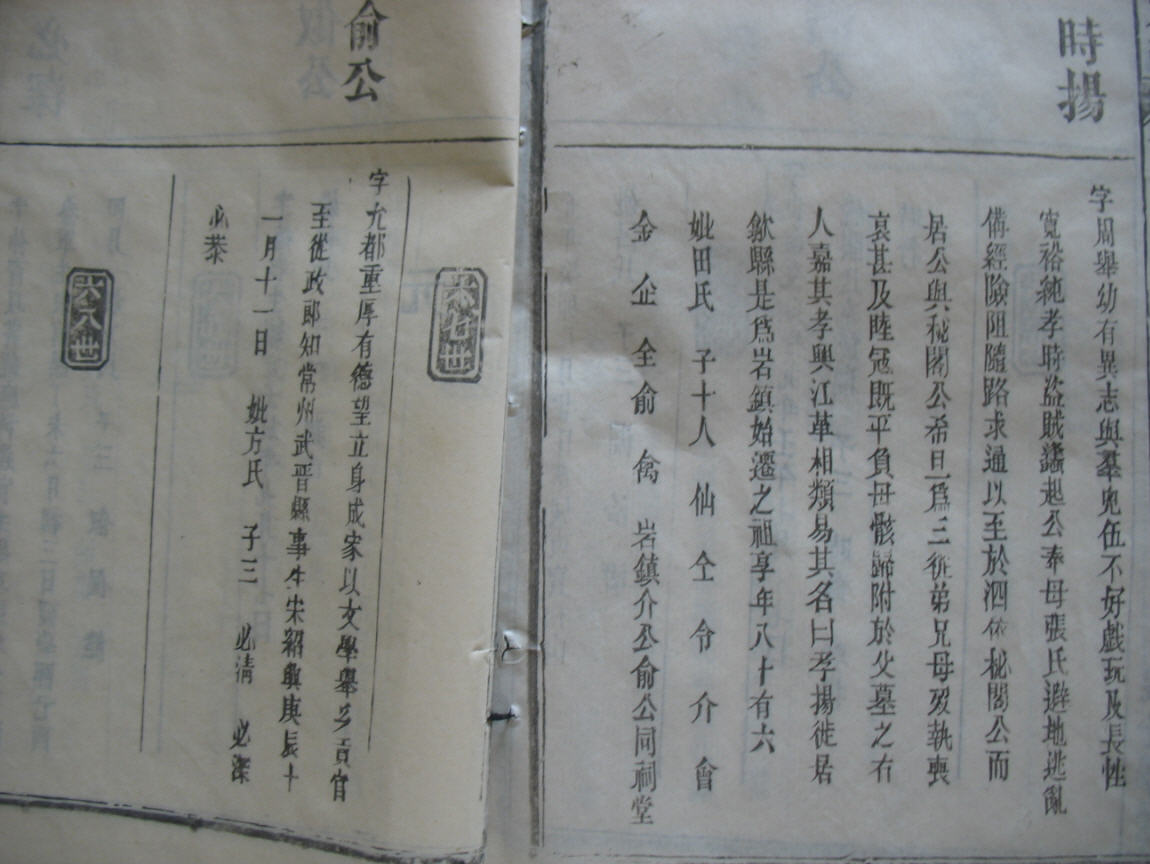 時揚
字周舉幼有異志與羣兒伍不好戲玩及長性
寬裕純孝時盜賊蠭起公奉母張氏避地逃亂
備經險阻隨路求通以至於泗依秘閣公而
居公與秘閣公希旦爲三從弟兄母歿執喪
哀甚及睦冦既平負母骸歸附於父墓之右
人嘉其孝與江革相類易其名曰孝揚徙居
歙縣是爲岩鎮始遷之祖享年八十有六
妣田氏 子十人 仙 仝 令 介 會
金 企 全 俞 禽 岩鎮介公俞公同祠堂
俞公
六七世
字允都重厚有德望立身成家以文學舉鄉貢官
至從政郎知常州武晉縣事生宋紹興庚辰十
一月十一日 妣方氏 子三 必清 必深
必恭
六八世